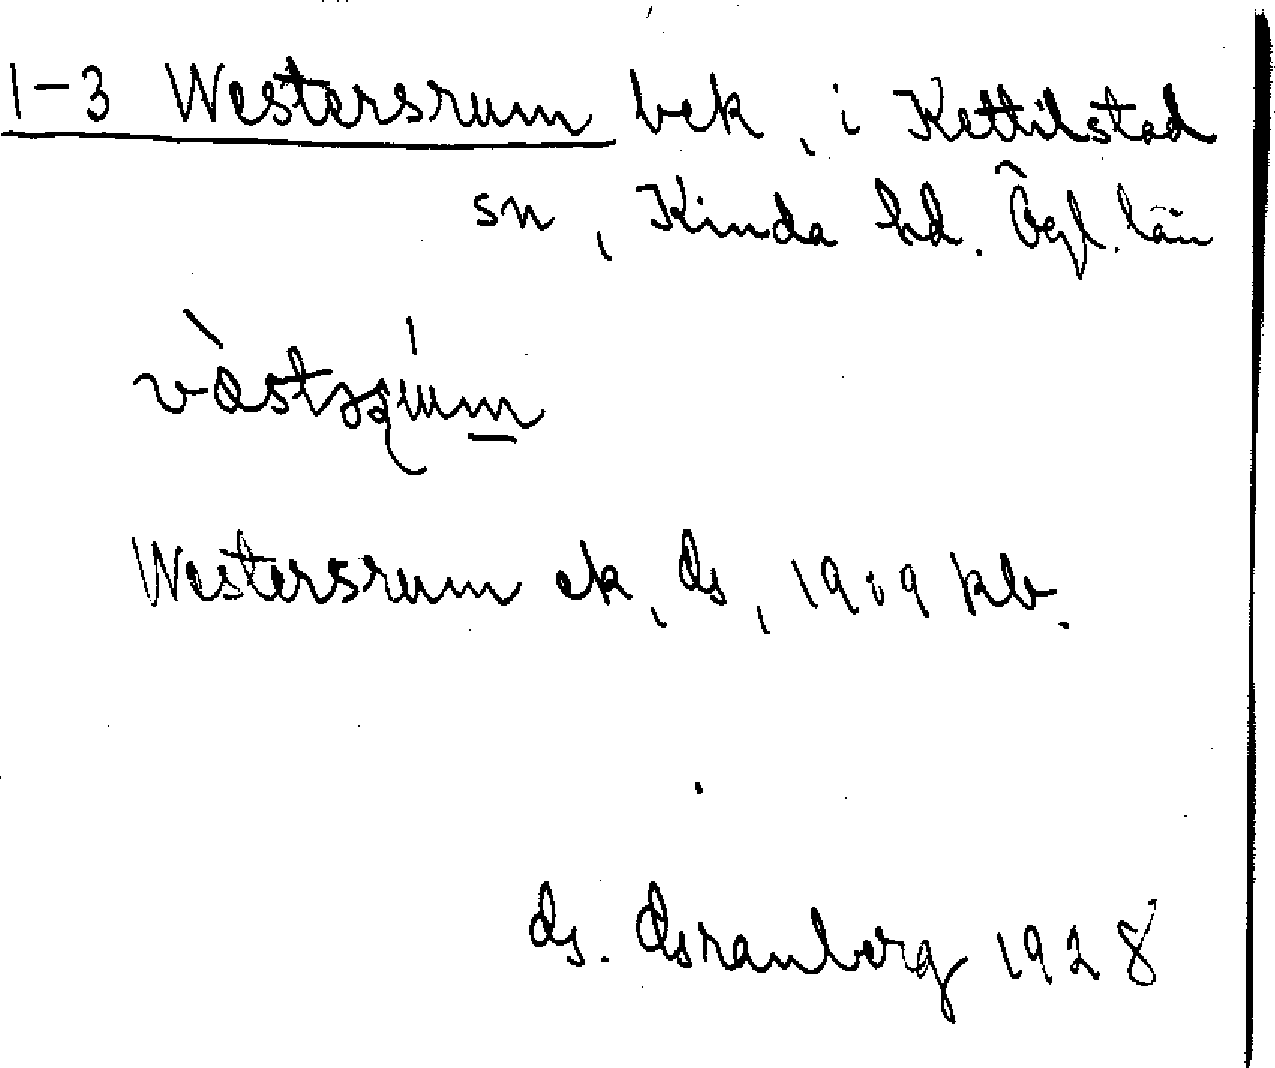 1-3 Westersrum bek, i Kettilstad
sn, Kinda hd. Ögl. län
Westersrum ek, ds, 1909 kb.
1928